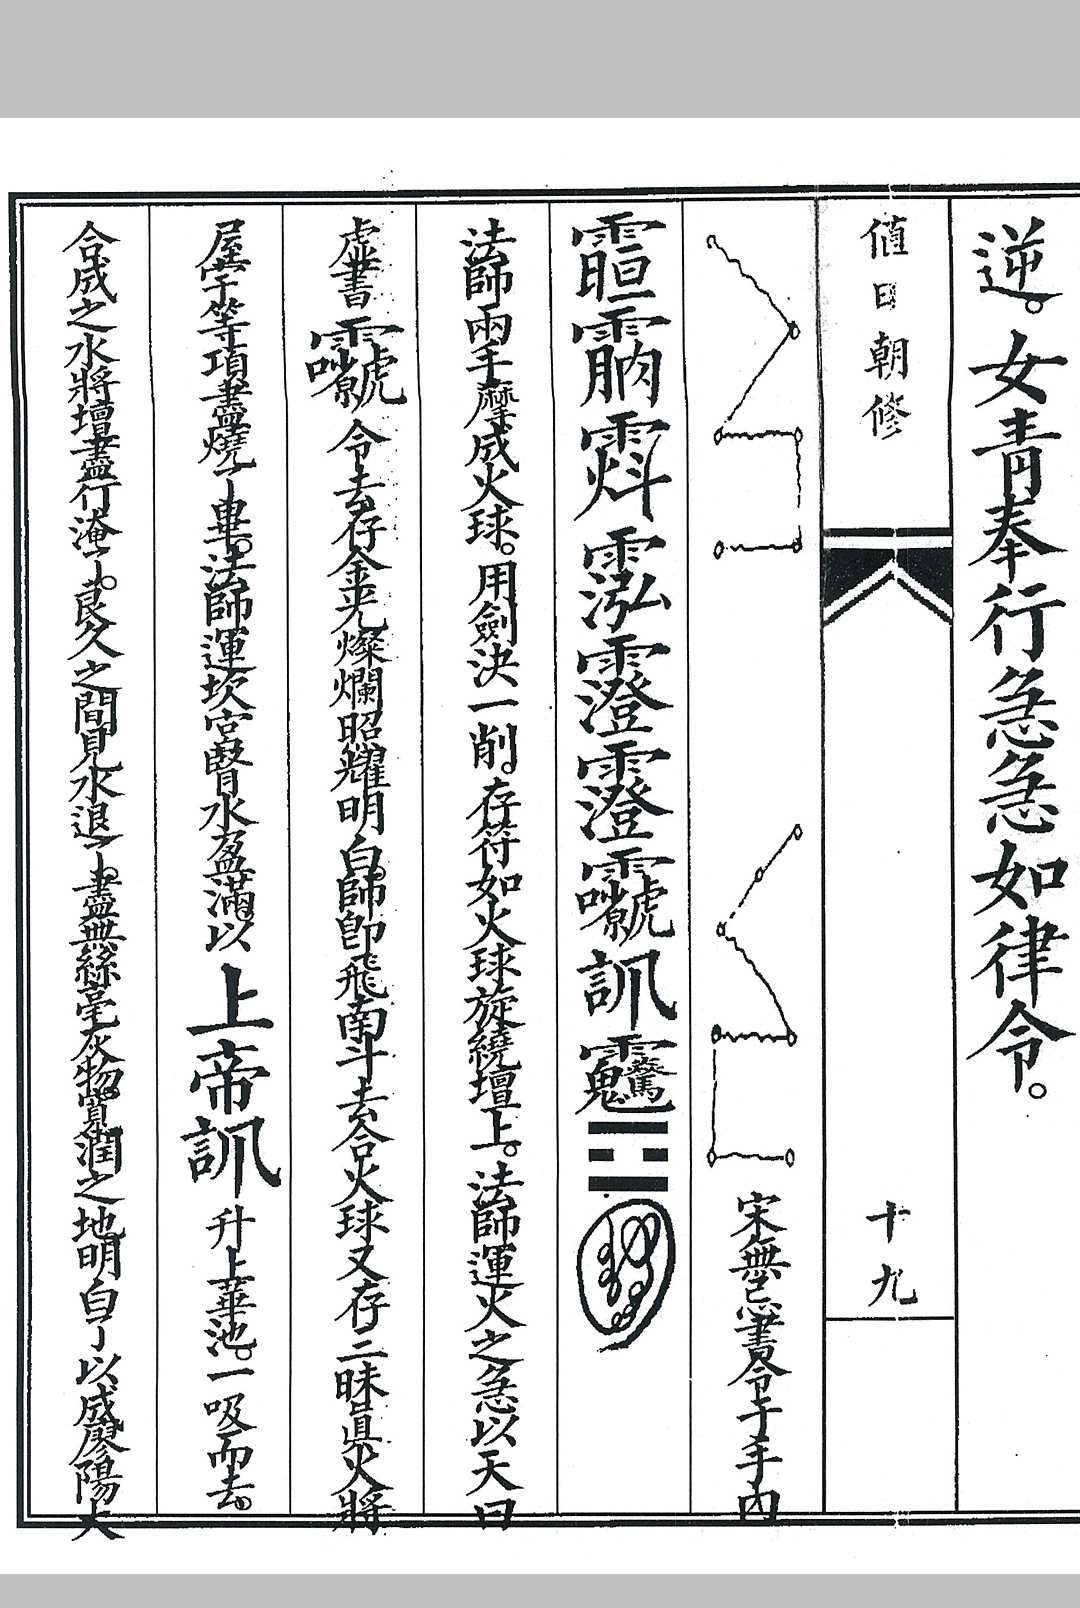 逆。女青奉行急急如律令。
值日朝修
十九
宋無忌書令于手内
訊
法師兩手摩成火球。用劍決一削。存符如火球旋繞壇上。法師運火之急以天目
虛書 令去存金光燦爛昭耀明白。師即飛南斗去合火球又存三昧真火將
屋宇等項盡燒了畢。法師運坎宮腎水盈滿。以上帝訊升上華池。一吸而去。
合成之水將壇盡行淹了。良久之間見水退了。盡無絲毫灰物。寬潤之地明白了以成廖陽大